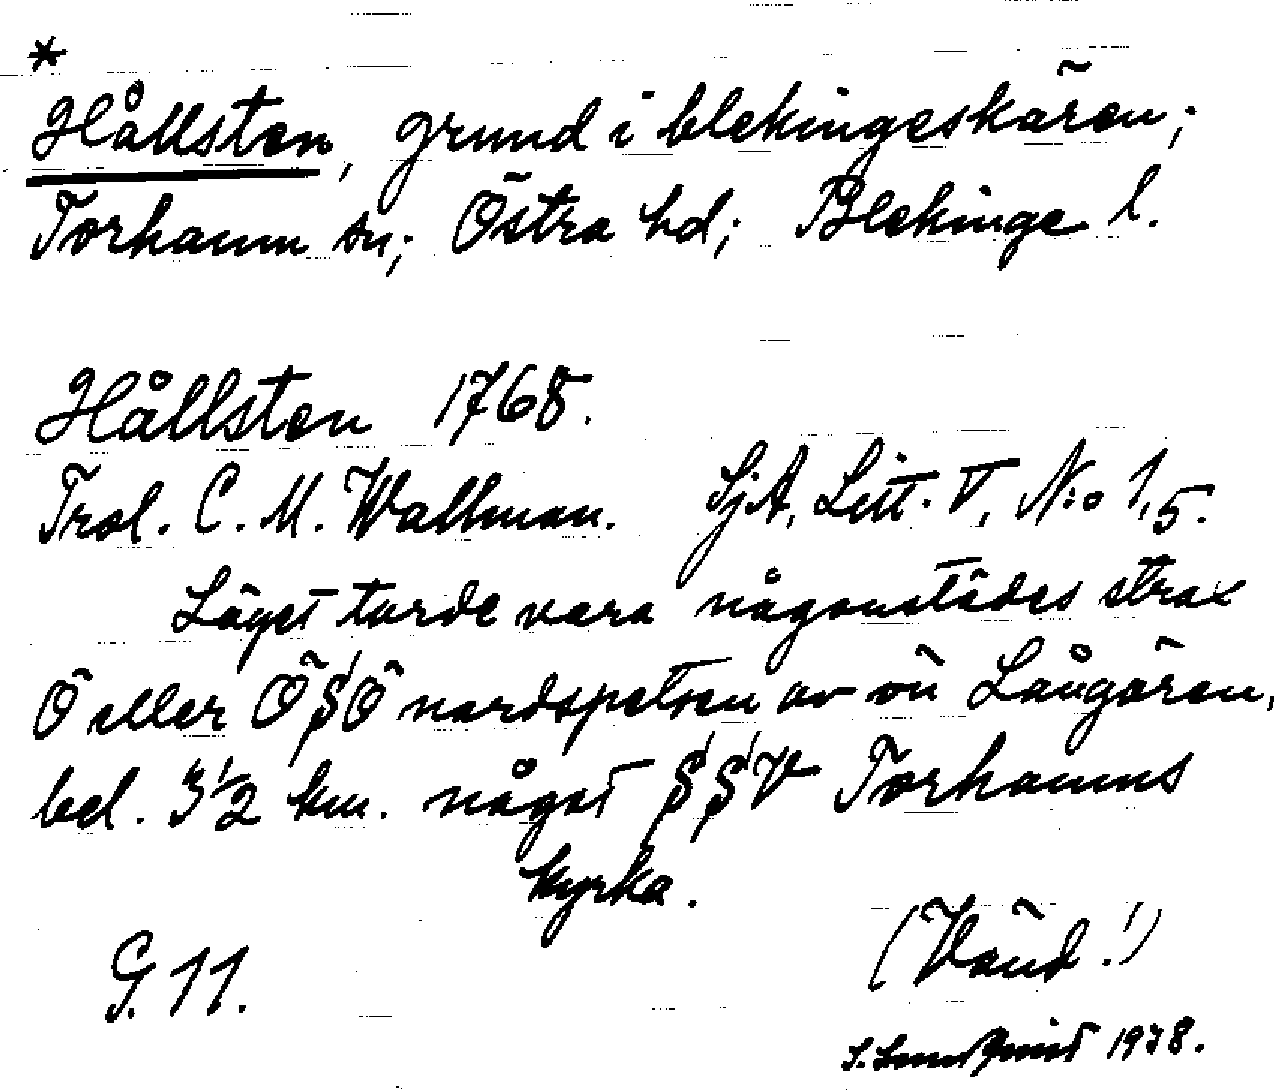 *
Hållsten, grund i blekingeskären;
Torhamn sn; Östra hd; Blekinge l.
Hållsten 1768.
Trol. C. M. Wallman. SjA, Litt. V, N:o 1,5.
Läget torde vara någonstädes strax
Ö eller ÖSÖ nordspetsen av ön Långören,
bel. 3 1/2 km. något SSV Torhamns
kyrka.
(Vänd!)
G. 11.
1938.